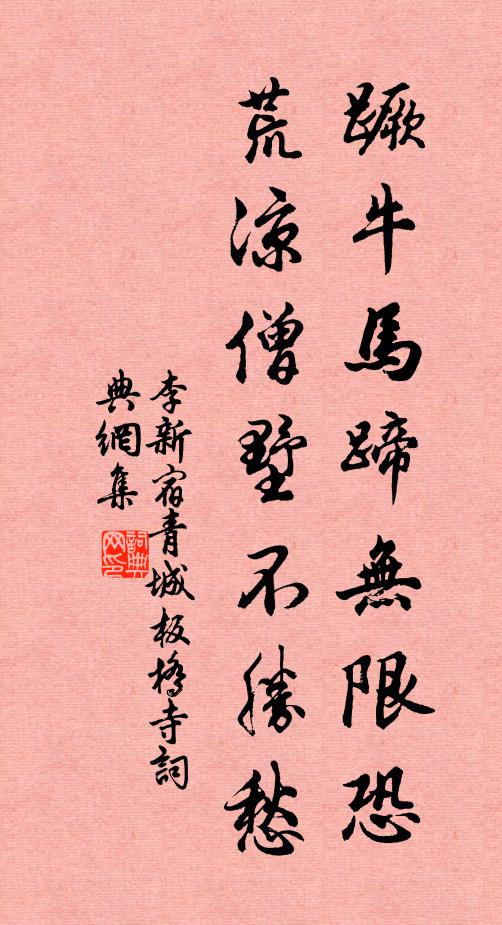 蹶牛馬蹄無限恐
荒涼僧墅不勝愁
李新宿青城板橋寺詞
典網集
詞典
网印